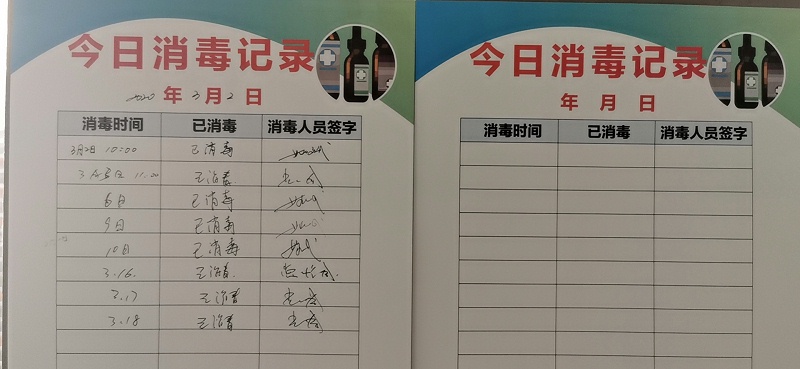 今日消毒记录
2020年3月2日
消毒时间 已消毒 消毒人员签字
3月2日 10:00 已消毒
11:00 已消毒
6日 已消毒
9日 已消毒
10日 已消毒
3.16. 已消毒.
3.17 已消毒
3.18 已消毒
今日消毒记录
年 月 日
消毒时间 已消毒 消毒人员签字